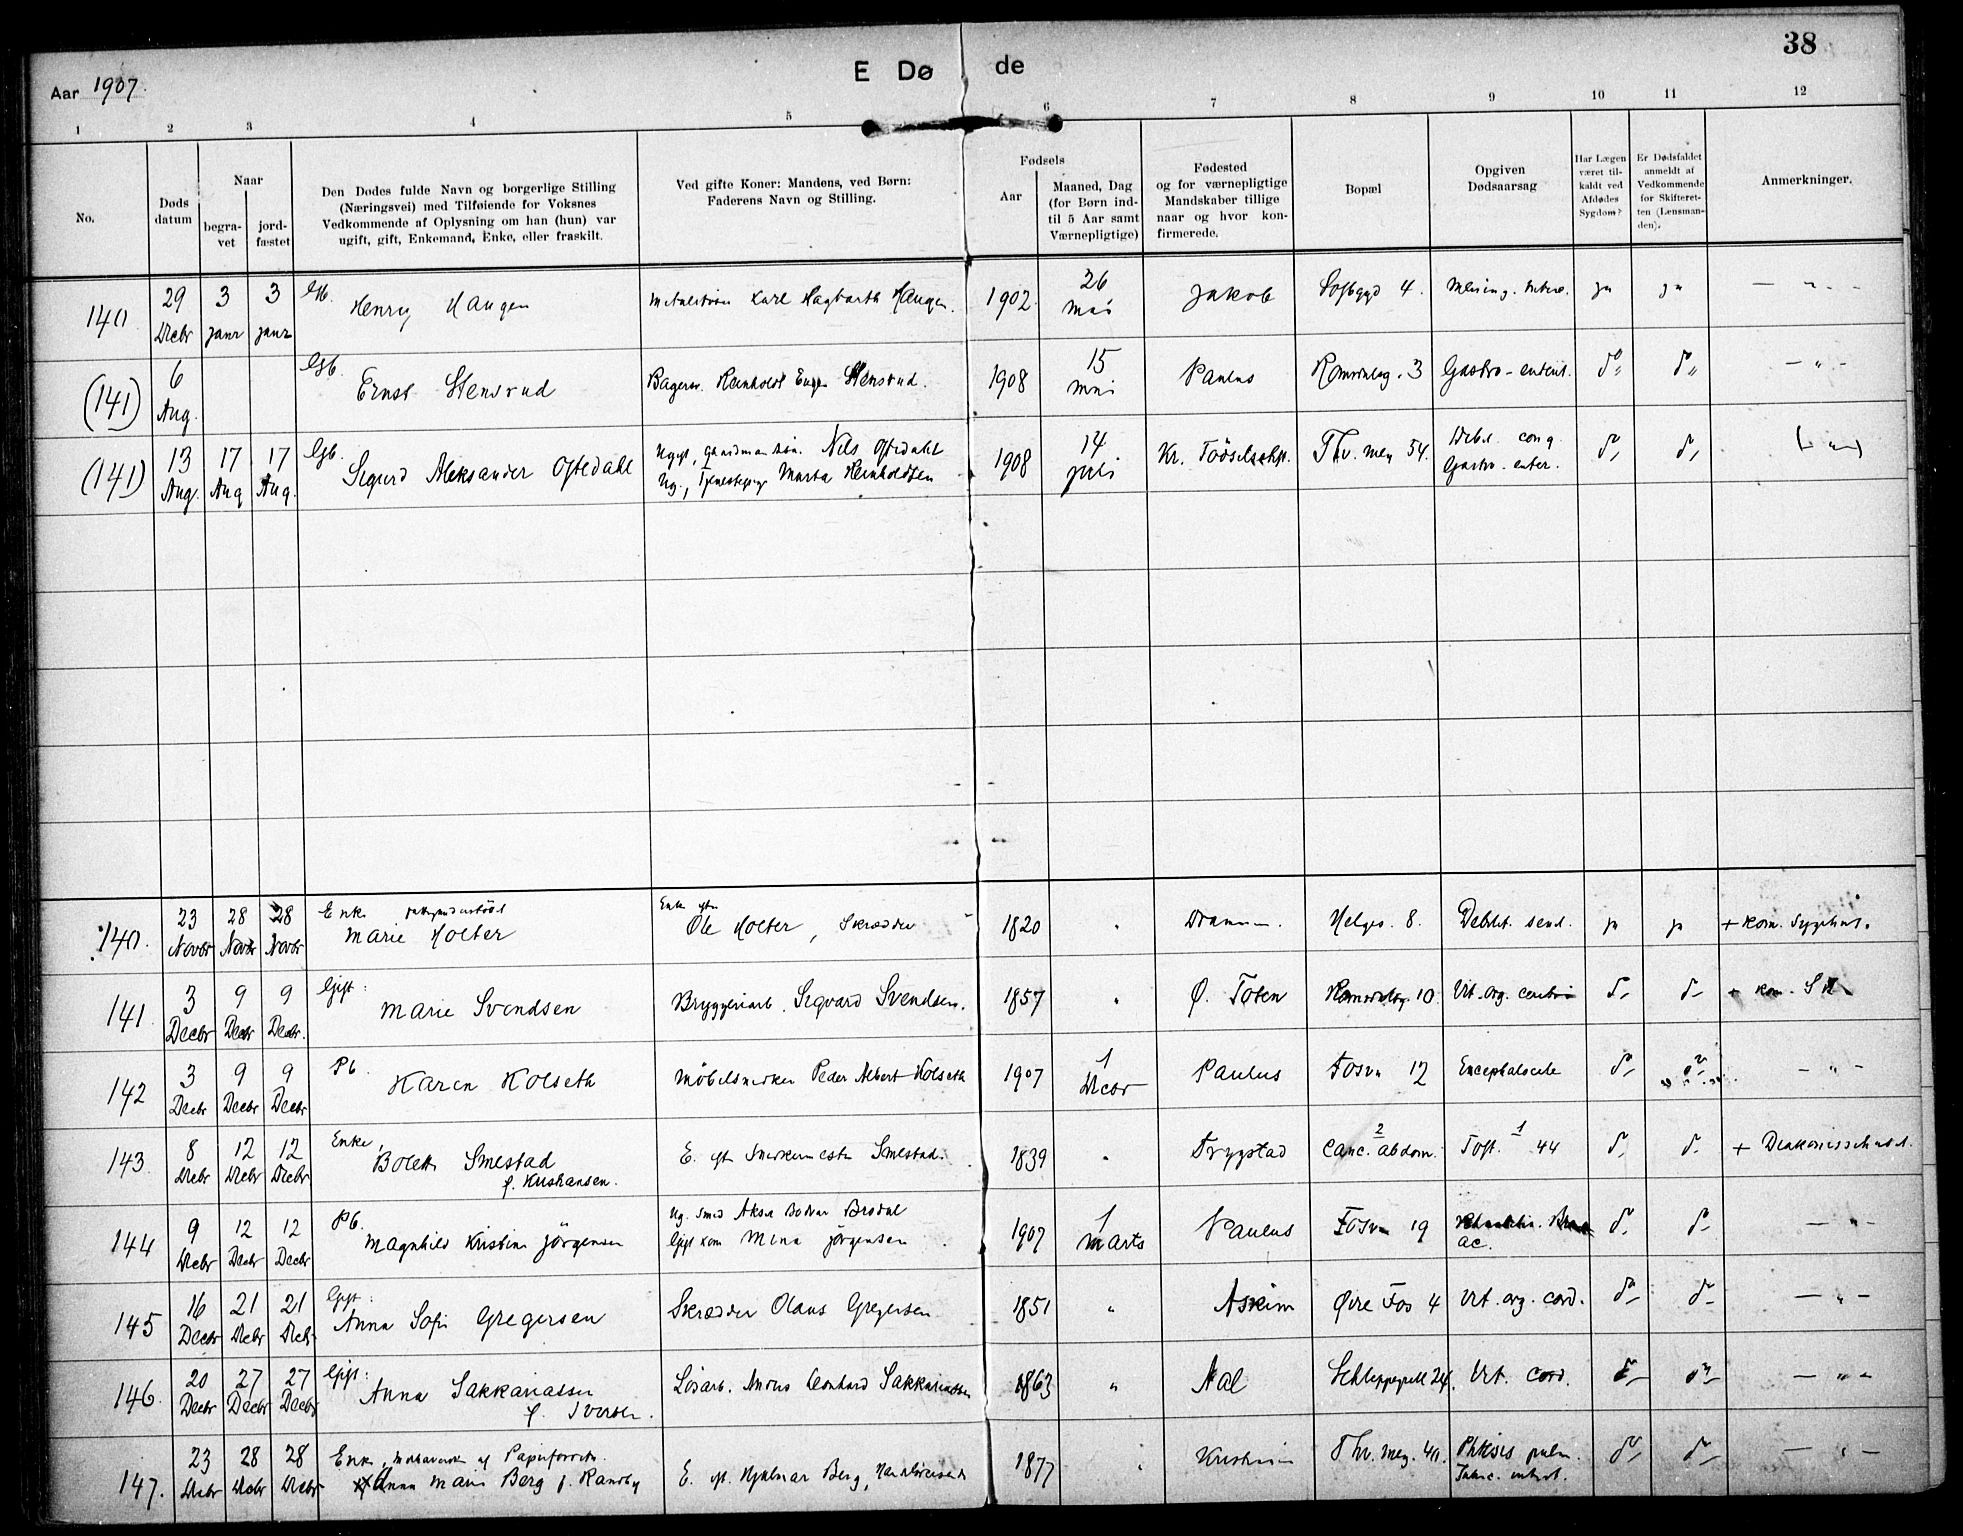 38
Aar 1907.
E Døde
1 2 3 4 5 6 7 8 9 10 11 12
No.
Døds datum
Naar
begravet
jordfæstet
Den Dødes fulde Navn og borgerlige Stilling
(Næringsvei) med Tilføiende for Voksnes
Vedkommende af Oplysning om han (hun) var
ugift, gift, Enkemand, Enke, eller fraskilt.
Ved gifte Koner: Mandens, ved Børn:
Faderens Navn og Stilling.
Fødsels
Aar
Maaned, Dag
(for Børn ind-
til 5 Aar samt
Værnepligtige)
Fødested
og for værnepligtige
Mandskaber tillige
naar og hvor kon-
firmerede.
Bopæl
Opgiven
Dødsaarsag
Har Lægen
været til-
kaldt ved
Afdødes
Sygdom?
Er Dødsfaldet
anmeldt af
Vedkommende
for Skifteret-
ten (Lensman-
den).
Anmerkninger.
140 29 Decbr 3 janr 3 janr Gb. Henry Haugen Karl Hagbarth Haugen. 1902. 26 mai Jakob Sofbggd 4. ja ja — " —
(141) 6 Aug. Gb. Ernst Stensrud Bagersv. Reinholdt Stensrud. 1908 15 mai Paulus Romsdalsg. 3 Gastro-enterit. do do — " —
(141) 13 Aug. 17 Aug 17 Aug. Gb. Sigurd Aleksander Oftedahl Ugift, Nels Oftedahl
Ug., Tjenestepige Marta Reinholdtsen 1908 14 juli Kr. Födselsstift. Thv. mey 54. Debil. cong. Gastro-enter. do do (— " —)
140. 23 Novbr 28 Novbr 28 Novbr Enke fattigunderstött Marie Holter Enke efter Ole Holter, Skrædder 1820 " Dramm. Helges. 8. Debilit. senil. ja ja + Kom. Sygehus.
141 3 Decbr 9 Decbr 9 Decbr. Gift: Marie Svendsen Bryggeriarb. Sigvard Svendsen. 1857 " Ø. Toten Romsdalsg. 10 Vit. org. cerebri do do + kom. S H.
142 3 Decbr 9 Decbr 9 Decbr Pb. Karen Holseth Möbelsnekker Peder Albert Holseth 1907 1 Decbr Paulus Fosv. 12 Encephalocele do do — " —
143. 8 Decbr 12 Decbr 12 Decbr Enke, Bolette Smestad
f. Kristiansen. E. eft. Snekkermester Smestad. 1839 " Trygstad 2 Canc. abdom. 1 Toft. 44 do do + Diakonissehuset.
144 9 Decbr 12 Decbr 12 Decbr Pb. Magnhild Kristine Jörgensen Ug. Smed Aksel Brodal
Gift Kone Mina Jörgensen 1907 1 Marts Paulus Fosv. 19 ac. do do — " —
145 16 Decbr 21 Decbr 21 Decbr Gift: Anna Sofie Gregersen Skrædder Olaus Gregersen 1851 " Askim Øvre Fos 4 Vit. org. cord. do do — " —
146 20 Decbr 27 Decbr 27 Decbr Gift: Anna Sakkariassen
f. Iversen. Lösarb. Leonhard Sakkariassen 1863 " Aal Schleppegrell 24. Vit. cord. do do — " —
147. 23 Decbr 28 Decbr 28 Decbr Enke, af Papirforretn.
Anna Marie Berg f. Randby E. eft. Hjalmar Berg, Handelsreisende 1877 " Kristiania Thv. mey. 40. Phtisis pulm.
Tuberc. intest. do do — " —